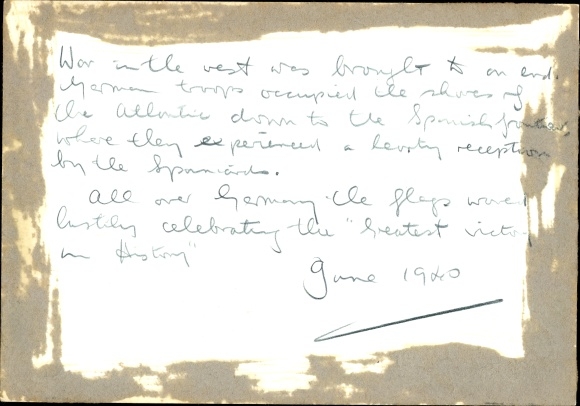 War in the west was brought to an end.
German troops occupied the shores of
the Atlantic down to the Spanish frontier,
where they experienced a hearty reception
by the Spaniards.
All over Germany the flags waved
lustily celebrating the "Greatest victory
in History"
June 1940